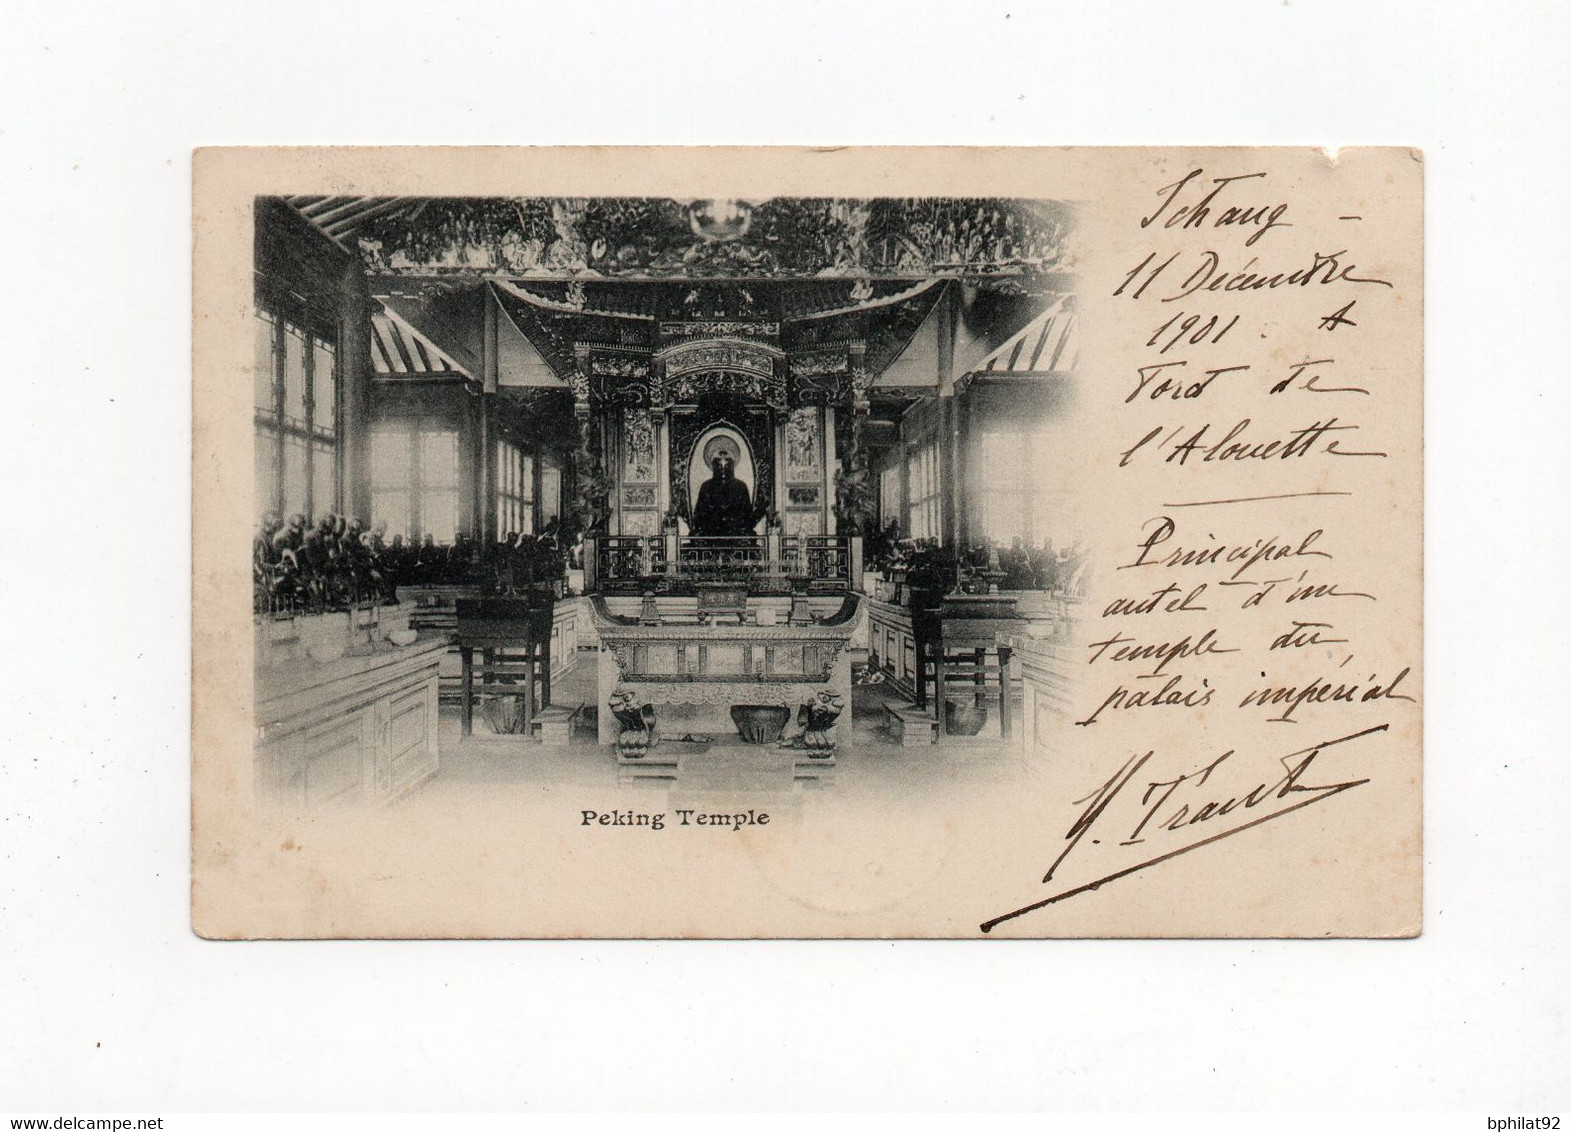 Ichang –
11 Décembre
1901. A
bord de
l'Alouette
Principal
autel d'un
temple du
palais impérial
H. Traut
Peking Temple
delcampe.net
bphilat92